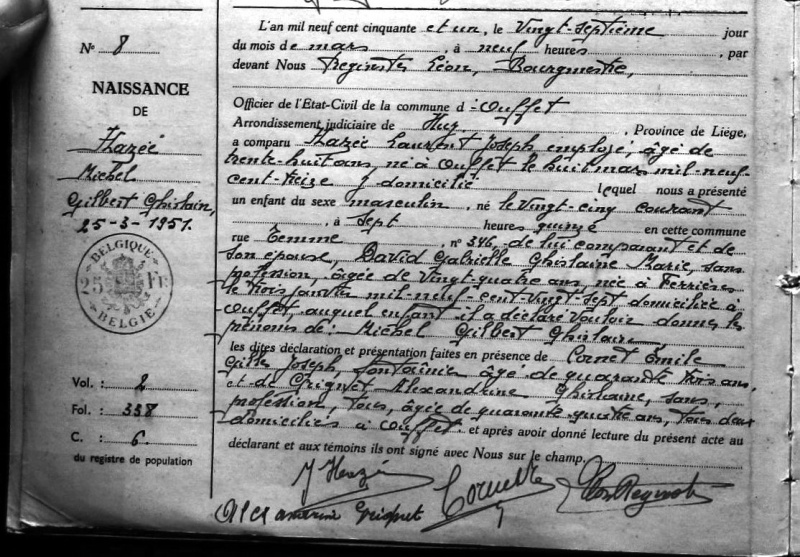 N° 8
NAISSANCE
DE
Hazée
Michel
Gilbert Ghislain,
25-3-1951.
BELGIQUE
25 Fr
BELGIE
Vol. : 2
Fol. : 338
C. : 6.
du registre de population
L'an mil neuf cent cinquante et un, le Vingt-septième jour
du mois de mars, à neuf heures, par
devant Nous Léon, Bourgmestre,
Officier de l'Etat-Civil de la commune d'Ouffet
Arrondissement judiciaire de Huy, Province de Liège,
a comparu Hazée Laurent Joseph employé, âgé de
trente-huit ans, né à Ouffet le huit mars mil-neuf-
cent-treize y domicilié lequel nous a présenté
un enfant du sexe masculin, né le vingt-cinq courant
, à sept heures quinze en cette commune
rue Temme, n° 346, de lui comparant et de
son épouse, David Gabrielle Ghislaine Marie, sans
profession, âgée de Vingt-quatre ans, née à Ferrières
le trois janvier mil-neuf-cent-vingt-sept domiciliée à
Ouffet, auquel enfant il a déclaré Vouloir donner les
prénoms de: Michel Gilbert Ghislain,
les dites déclaration et présentation faites en présence de Cornet Emile
Gilles Joseph, fontainier âgé de quarante trois ans,
et de Grignet Alexandrine Ghislaine, sans,
profession, tous, âgée de quarante quatre ans, tous deux
domiciliés à Ouffet. et après avoir donné lecture du présent acte au
déclarant et aux témoins ils ont signé avec Nous sur le champ.
Hazée